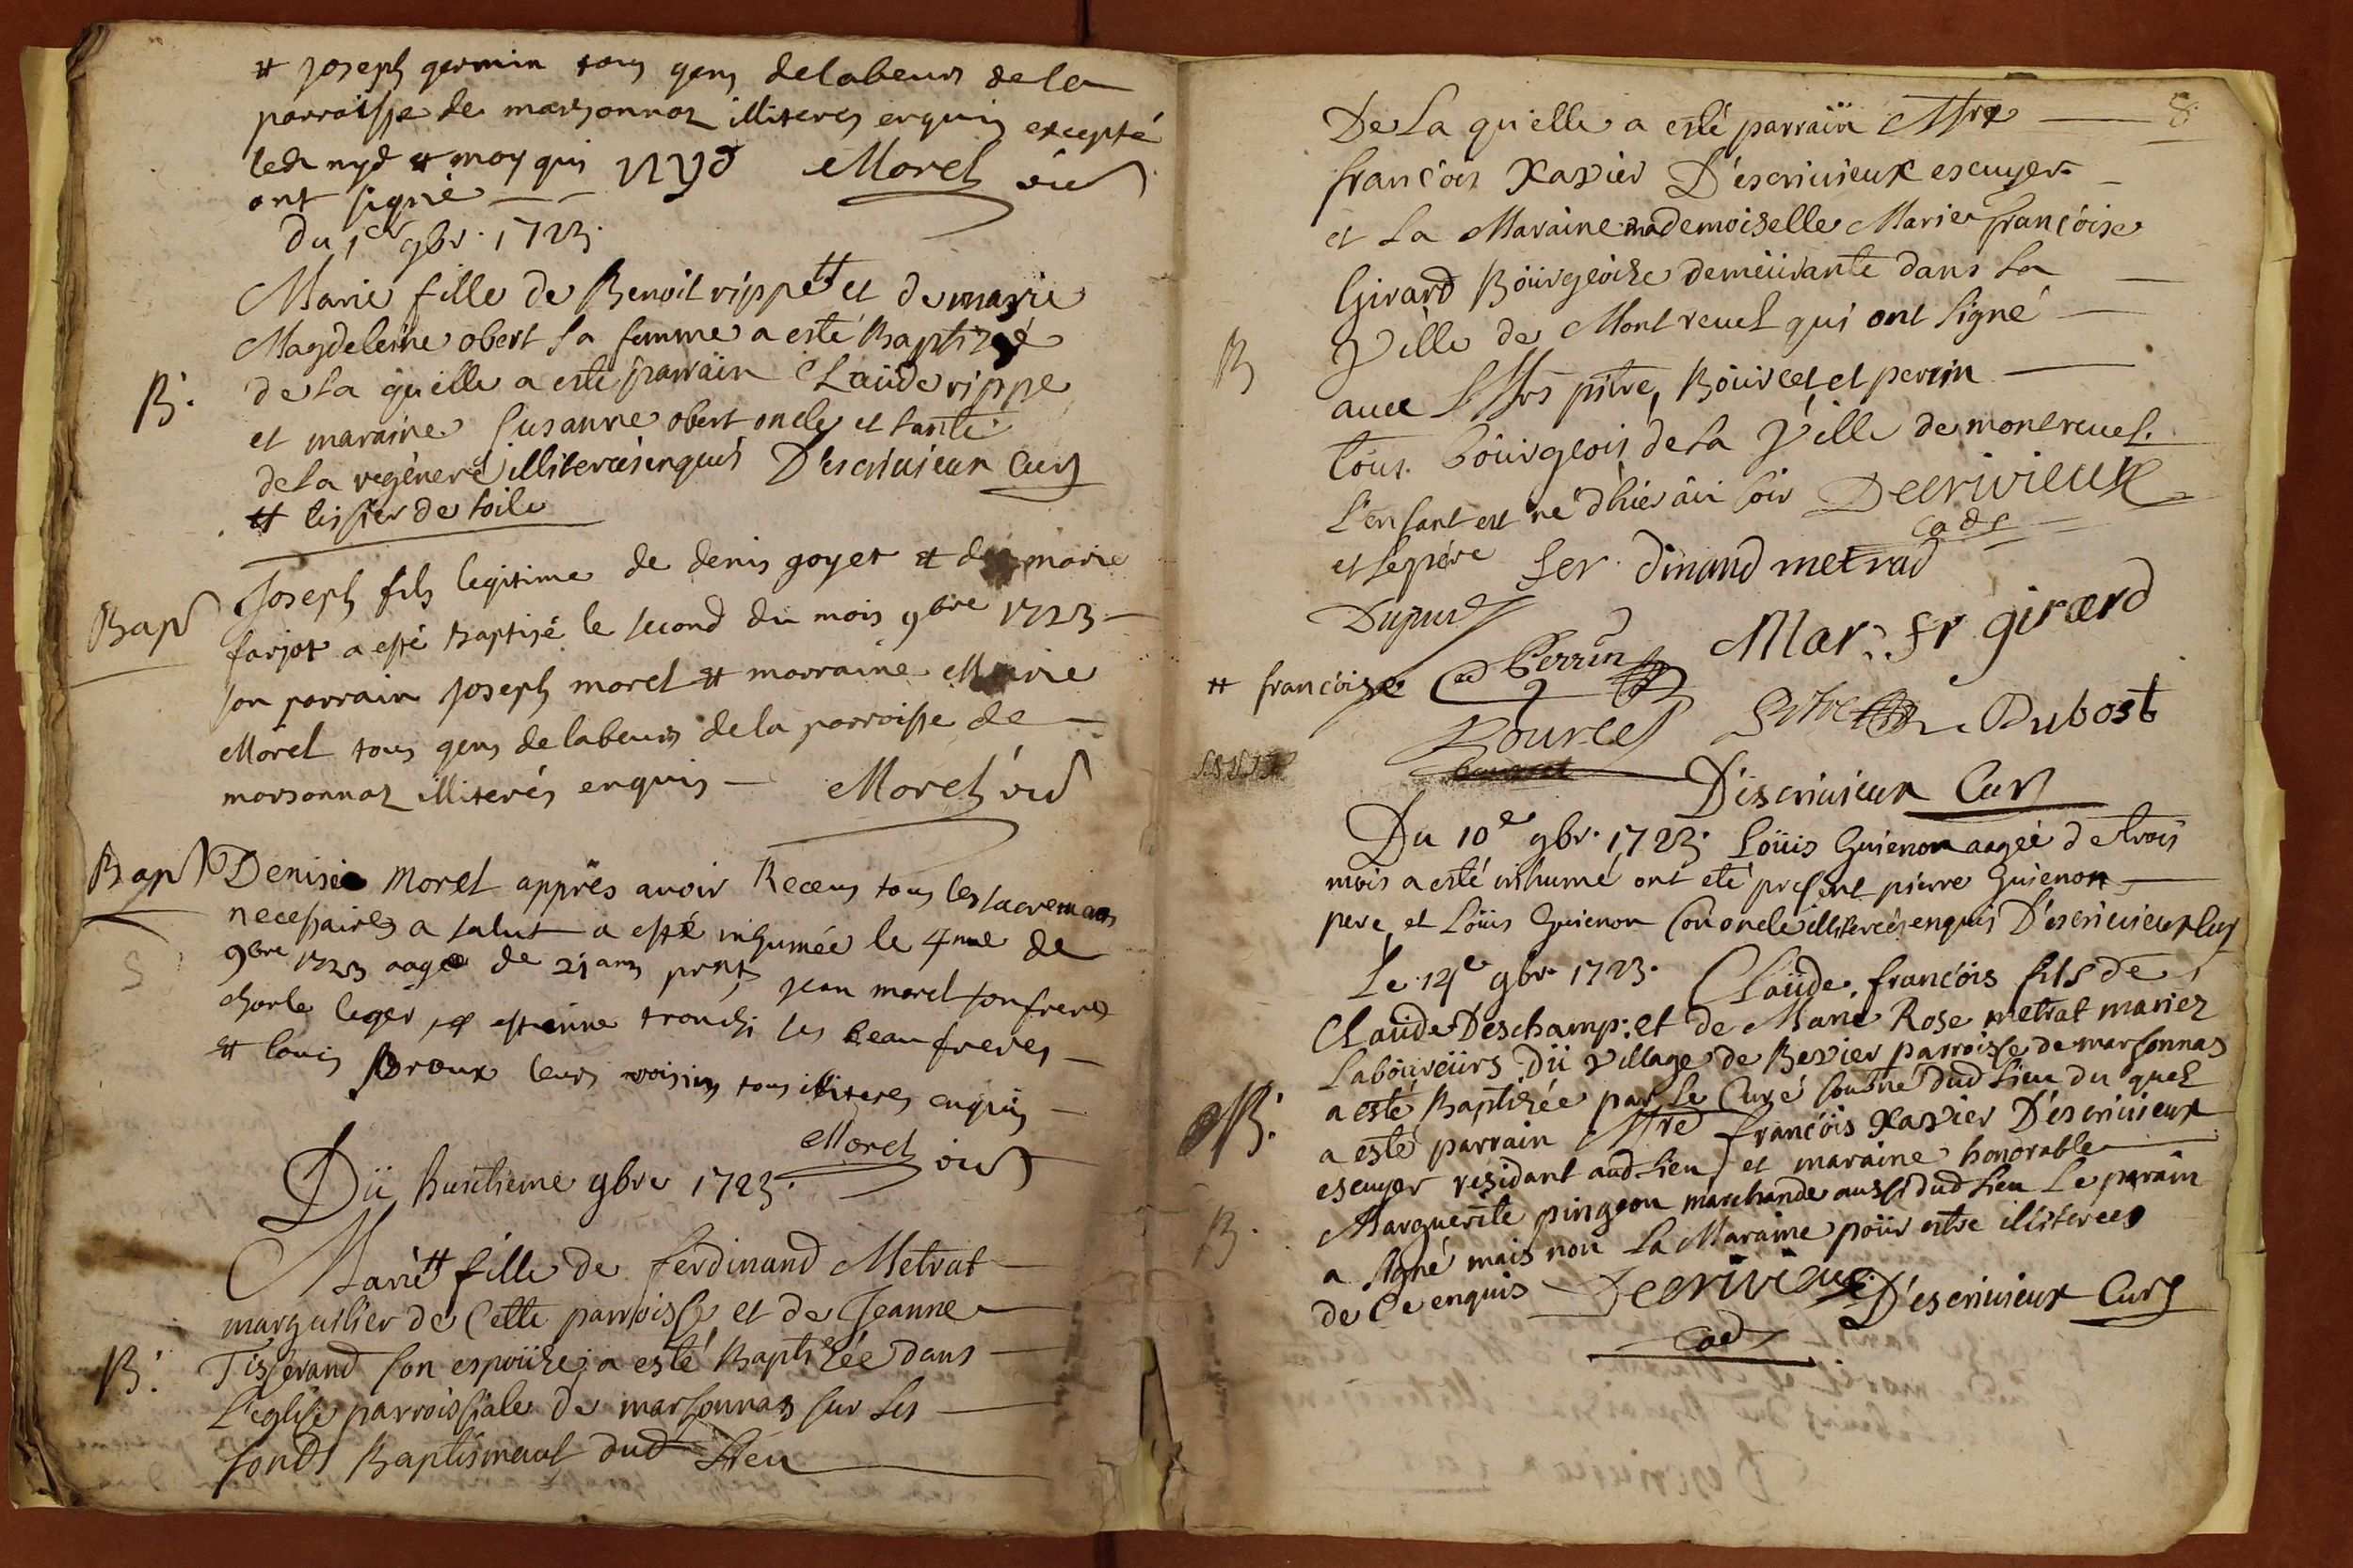 # joseph germin tous gens delabeurs de la
parroisse de marsonnaz illiteres enquis excepté
led nyd et moy qui nyd Morel vic
ont signé
du 1er 9br. 1723.
Marie fille de Benoit rippe # et de marie
Magdeleine obert sa femme a esté Baptizé
B. de La quelle a esté parrain Claude rippe
et maraine Susanne obert oncle et tante
de La regénéré illiterés enquis D'escriuieux Curé
# tissier de toile
Joseph fils legitime de denis goyet et de marie
Bap farjot a esté Baptisé le second du mois 9bre 1723
son parrain joseph morel et marraine Marie
Morel tous gens de labeurs de la parroisse de
marsonnaz illiterés enquis Morel vic
Bap Denise Morel apprès avoir Receus tous les sacremans
necessaires a salut a esté inhumée le 4me de
S 9bre 1723 aagé de 21 ans pnts jean morel son frere
charle leger et estienne tronchi ses beaufreres
et louis Broux leurs voisins tous illiteres enquis
Morel vic
Dü huictieme 9bre 1723.
Marie # fille de ferdinand Metrat
marguilier de Cette parroisse et de Jeanne
B. Tisserand son espoüze; a esté Baptizée dans
L'eglise parroissiale de marsonnas sur Les
fonds Baptismaux dud Lieu
8.
De La quelle a esté parrain Mre
françois Xavier D'escriuieux escuyer
et La Maraine mademoiselle Marie françoise
Girard Bourgeoize demeurante dans La
B Ville de Montreuel qui ont signé
auec Mrs pitre, Bourcet et perrin
tous bourgeois de La Ville de montreuel.
L'enfant est né d'hier au soir Decrivieux
cade
et Le père fer. dinand metrad
Dupuis
# françoise Perrin Mar. fr girard
Bource Pitre Dubost
D'escriuieux Curé
Du 10e 9br. 1723. Loüis Guienon aagée de trois
mois a esté inhumé ont eté present pierre Guienon
pere et Loüis Guienon Son oncle illiterés enquis D'escriuieux Curé
Le 14e 9br. 1723. Claude. françois fils de
Claude Deschamp: et de Marie Rose metrat mariez
Laboureurs Dü Village de Bevier parroisse de marsonnas
B. a esté Baptizée par Le Curé soubné dud Lieu du quel
a esté parrain Mre françois Xavier D'escriuieux
escuyer residant aud Lieu et maraine honorable
B. Marguerite pingeon marchande aussi dud Lieu Le parain
a signé mais non La Maraine pour estre illiterée
de Ce enquis Decrivieux D'escriuieux Curé
cad